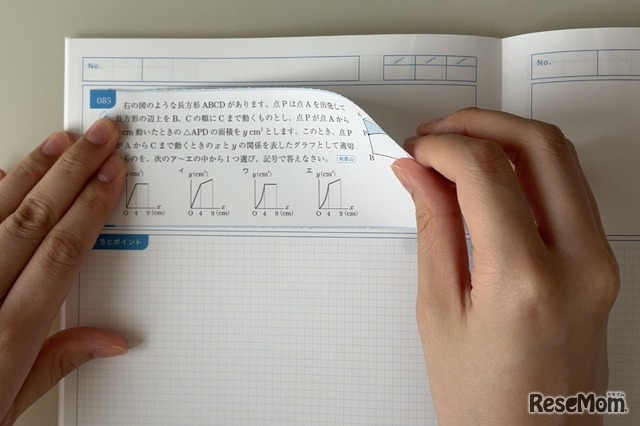 No.
No.
085
右の図のような長方形 ABCD があります。点 P は点 A を出発して
長方形の辺上を B、C の順に C まで動くものとし、点 P が点 A から
cm 動いたときの △APD の面積を y cm² とします。このとき、点 P
が A から C まで動くときの x と y の関係を表したグラフとして適切
ものを、次のア〜エの中から1つ選び、記号で答えなさい。 和歌山
A
P
B
y(cm²)
イ y(cm²)
ウ y(cm²)
エ y(cm²)
O 4 9 (cm) x
O 4 9 (cm) x
O 4 9 (cm) x
O 4 9 (cm) x
方とポイント
ReseMom.